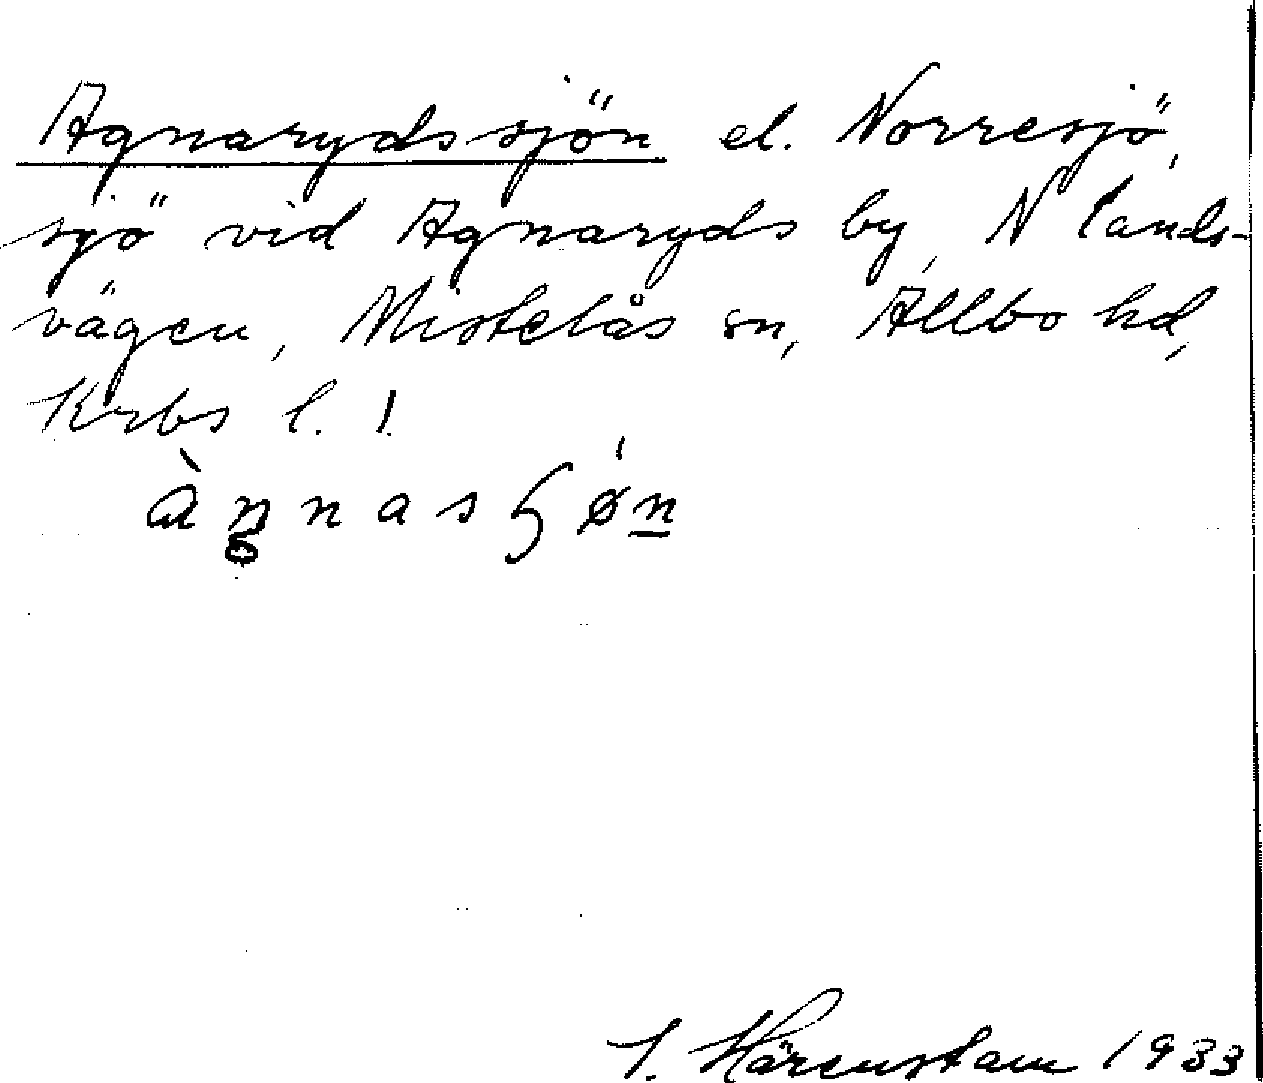 Agnarydssjön el. Norresjö,
sjö vid Agnaryds by, N lands-
vägen, Mistelås sn, Allbo hd,
Krbs l. !
àŋnasɧǿn
I. Härenstam 1933